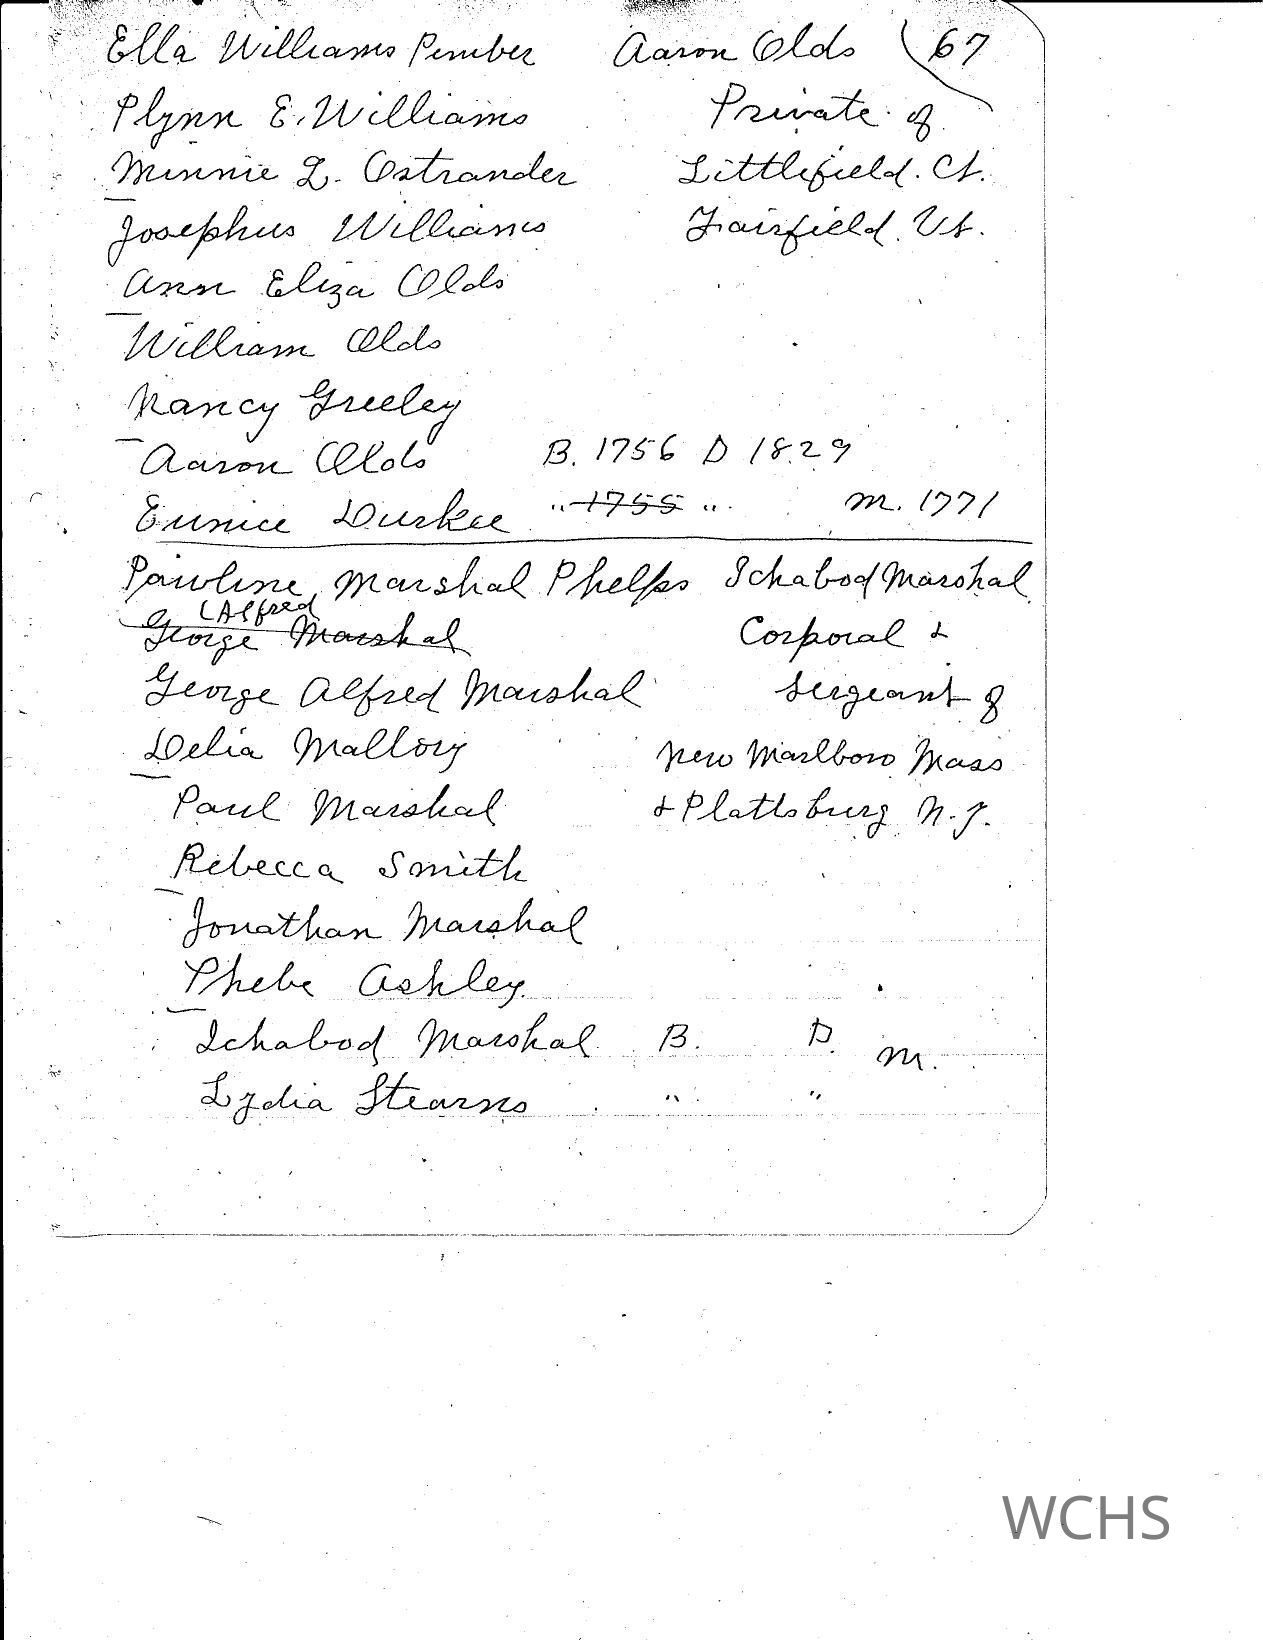 Ella Williams Pember Aaron Olds 67
Plynn E. Williams Private of
Minnie L. Ostrander Littlefield. Ct.
Josephus Williams Fairfield. Vt.
Ann Eliza Olds
William Olds
Nancy Greeley
Aaron Olds B. 1756 D 1829
Eunice Durkee " 1755 " m. 1771
Pauline Marshal Phelps Ichabod Marshal
(Alfred
George Marshal Corporal &
George Alfred Marshal Sergeant of
Delia Mallory New Marlboro Mass
Paul Marshal & Plattsburg N.Y.
Rebecca Smith
Jonathan Marshal
Phebe Ashley
Ichabod Marshal B. D. m.
Lydia Stearns " "
WCHS